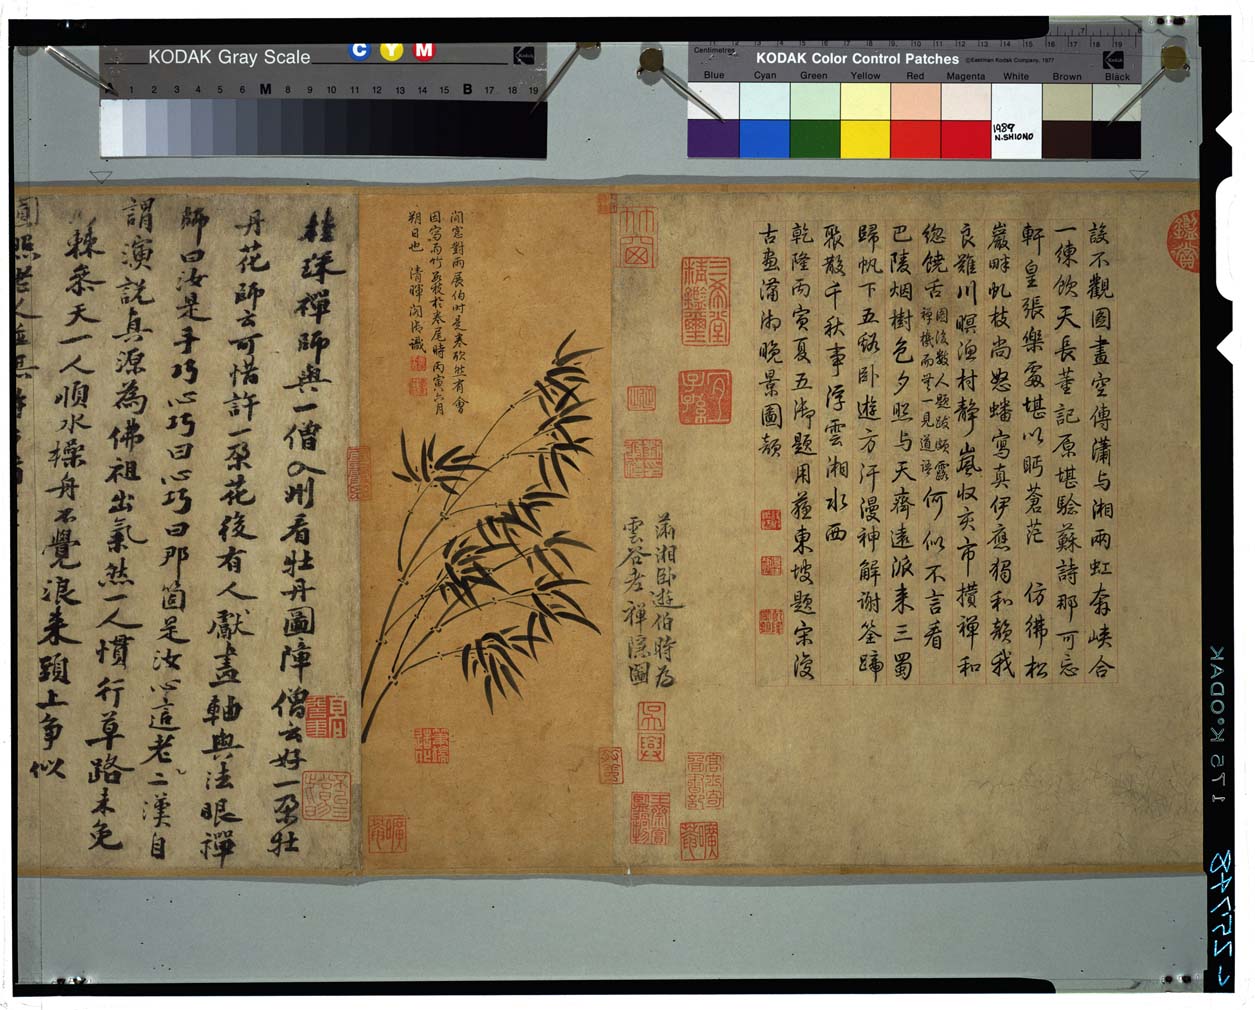 KODAK Gray Scale
C Y M
Kodak
1 2 3 4 5 6 M 8 9 10 11 12 13 14 15 B 17 18 19
Centimetres
KODAK Color Control Patches
©Eastman Kodak Company, 1977
Kodak
Blue Cyan Green Yellow Red Magenta White Brown Black
1989
N.SHIONO
設不觀圖畫空傳瀟与湘兩虹奔峽合
一練飲天長董記原堪驗蘇詩那可忘
軒皇張樂處堪以眄蒼茫 仿彿松
巖畔虬枝尚怒蟠寫真伊應獨和韻我
良難川暝漁村靜嵐收亥市攢禪和
總饒舌圖後數人題跋頗露禪機而無一見道語何似不言看
巴陵烟樹色夕照与天齊遠派来三蜀
歸帆下五谿卧遊方汗漫神解謝筌蹄
聚散千秋事浮雲湘水西
乾隆丙寅夏五御題用蘓東坡題宋復
古畫瀟湘晚景圖韻
三希堂精鑑璽
宜子孫
瀟湘卧遊伯時為
雲谷老禪隱圖
閒窓對雨展伯時是卷欣然有會
因寫雨竹數枝於卷尾時丙寅六月
朔日也 清暉閣御識
桂琛禪師與一僧入州看牡丹圖障僧云好一朶牡
丹花師云可惜許一朶花後有人獻畫軸與法眼禪
師曰汝是手巧心巧曰心巧曰那箇是汝心這老二漢自
謂演說真源為佛祖出氣然一人慣行草路未免
棘參天一人順水操舟不覺浪来頭上争似
照老人
KODAK